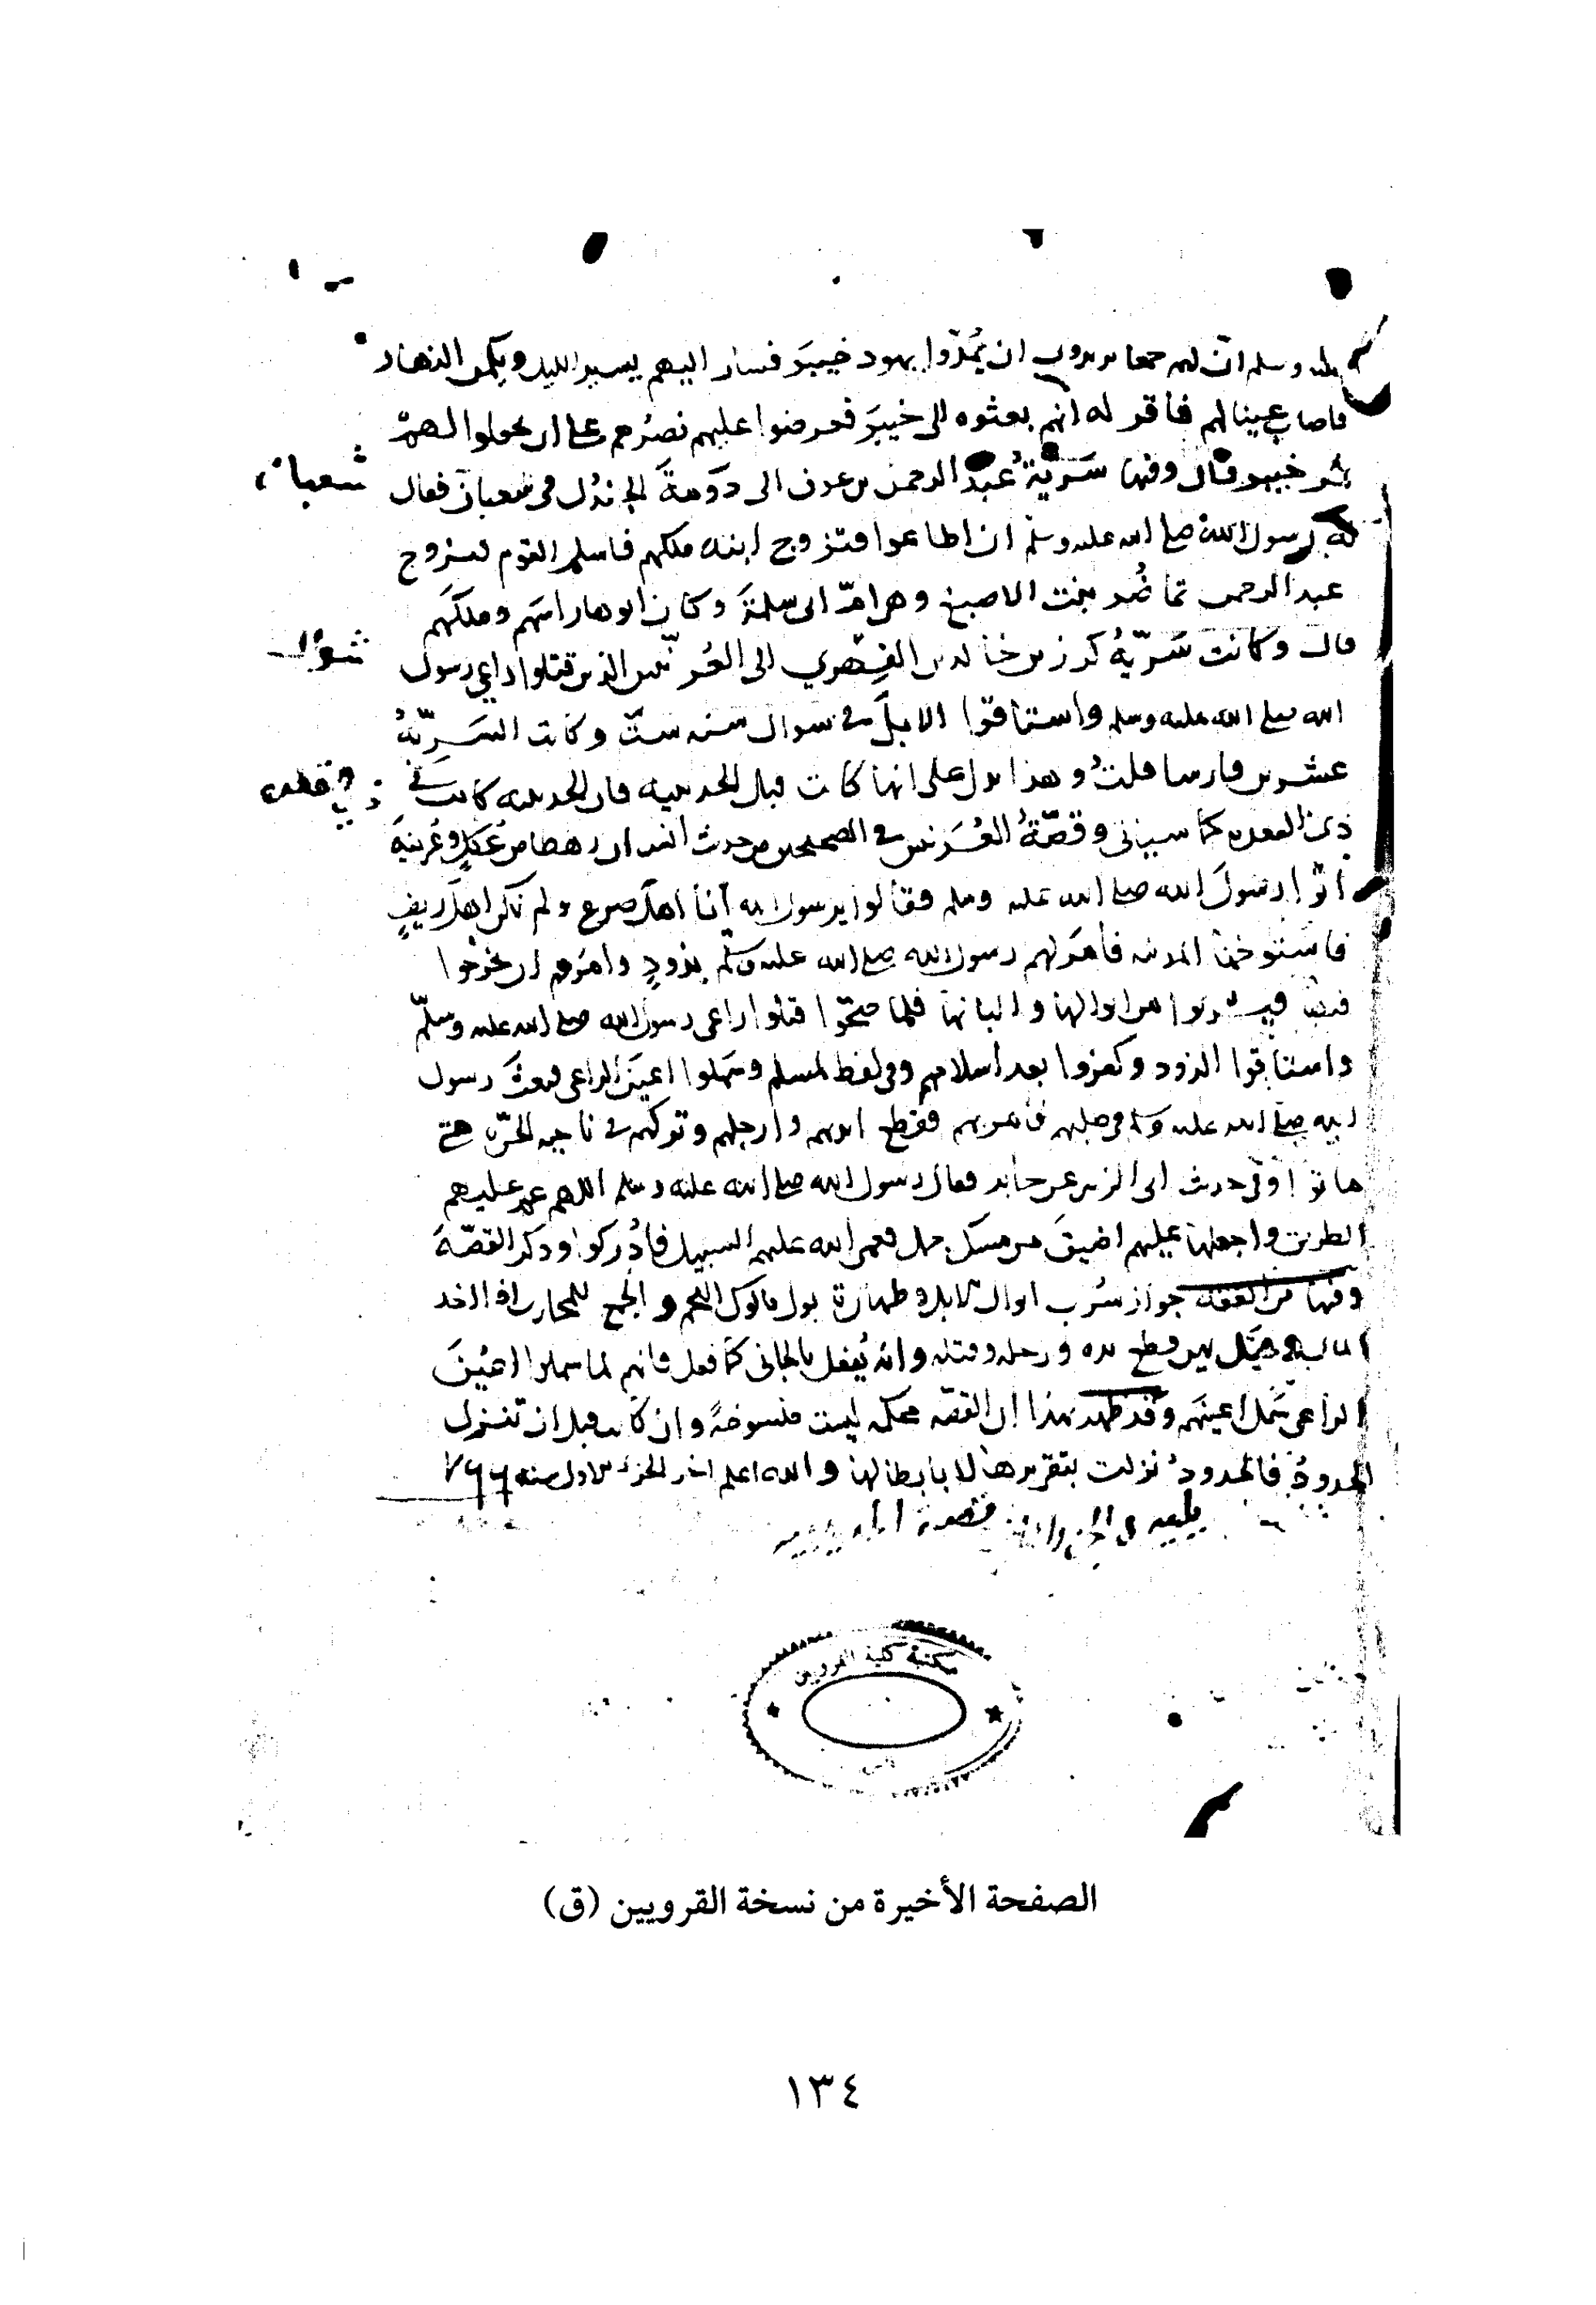 عليه وسلم ان لهم جمعا يريدون ان يمُدّوا يهود خيبرَ فسار اليهم يسير الليل ويكمن النهار
فاصاب عينا لهم فاقر له انهم بعثوه الى خيبرَ فعرضوا عليهم نصرُهم على ان يجعلوا لهم
ثمر خيبر قال وفيها سَريّةُ عبد الرحمن بن عوف الى دَومةَ الجندل في شعبان فقال
شعبان
له رسول الله صلى الله عليه وسلم ان اطاعوا فتزوج ابنه ملكهم فاسلم القوم فتزوج
عبد الرحمن تماضُر بنت الاصبغ وهي امّ ابي سلمةَ وكان ابوها راسَهم وملكهم
قال وكانت سَريّةُ كرز بن خالد بن الفهري الى العُرنيّين الذين قتلوا راعي رسول
شوال
الله صلى الله عليه وسلم واستاقوا الابلَ في شوال سنه ستّ وكانت السَريّةُ
عشرين فارسا قلتُ وهذا يدل على انها كانت قبل الحديبيه فان الحديبيه كانت في
ذي القعده كما سياتي وقصّةُ العُرَنيين في الصحيحين من حديث انس ان رهطا من عُكلٍ وعُرينةَ
اتوا رسولَ الله صلى الله عليه وسلم فقالوا يرسول الله انا اهل ضرع ولم نكن اهلَ ريفٍ
فاستوخمنا المدينه فأمَر لهم رسول الله صلى الله عليه وسلم بذودٍ وامَرهم ان يخرجوا
فيها فيشربوا من ابوالها والبانها فلما صَحّوا قتلوا راعي رسول الله صلى الله عليه وسلّم
واستاقوا الذود وكفروا بعد اسلامهم وفي لفظ لمسلم وسَملوا اعينَ الراعي فبعثَ رسول
الله صلى الله عليه وسلم في طلبهم فامر بهم فقطع ايديهم وارجلهم وتركهم في ناحيه الحَرّة حتى
ماتوا وفي حديث ابي الزبير عن جابر فقال رسول الله صلى الله عليه وسلم اللهم عمِّ عليهم
الطريق واجعلها عليهم اضيقَ من مسك جمل فعمى الله عليهم السبيل فأُدركوا وذكر القصّةَ
وفيها من الفقه جواز شُرب ابوال الابل وطهارة بول ماكول اللحم والجمع للمحارب اذا اخذ
المال وقتل بين قطع يده ورجله وقتله وانه يُفعل بالجاني كما فعل فانهم لما سملوا اعينَ
الراعي سَمل اعينَهم وقد ظهر بهذا ان القصّه محكمه ليست منسوخةً وان كانت قبل ان تنزل
الحدودُ فالحدودُ نزلت بتقريرها لا بابطالها والله اعلم اخر الجزء الاول سنه ٧٦٦
يليه في الجزء الثاني قصة الحديبيه
مكتبة كلية القرويين
الصفحة الأخيرة من نسخة القرويين (ق)
١٣٤